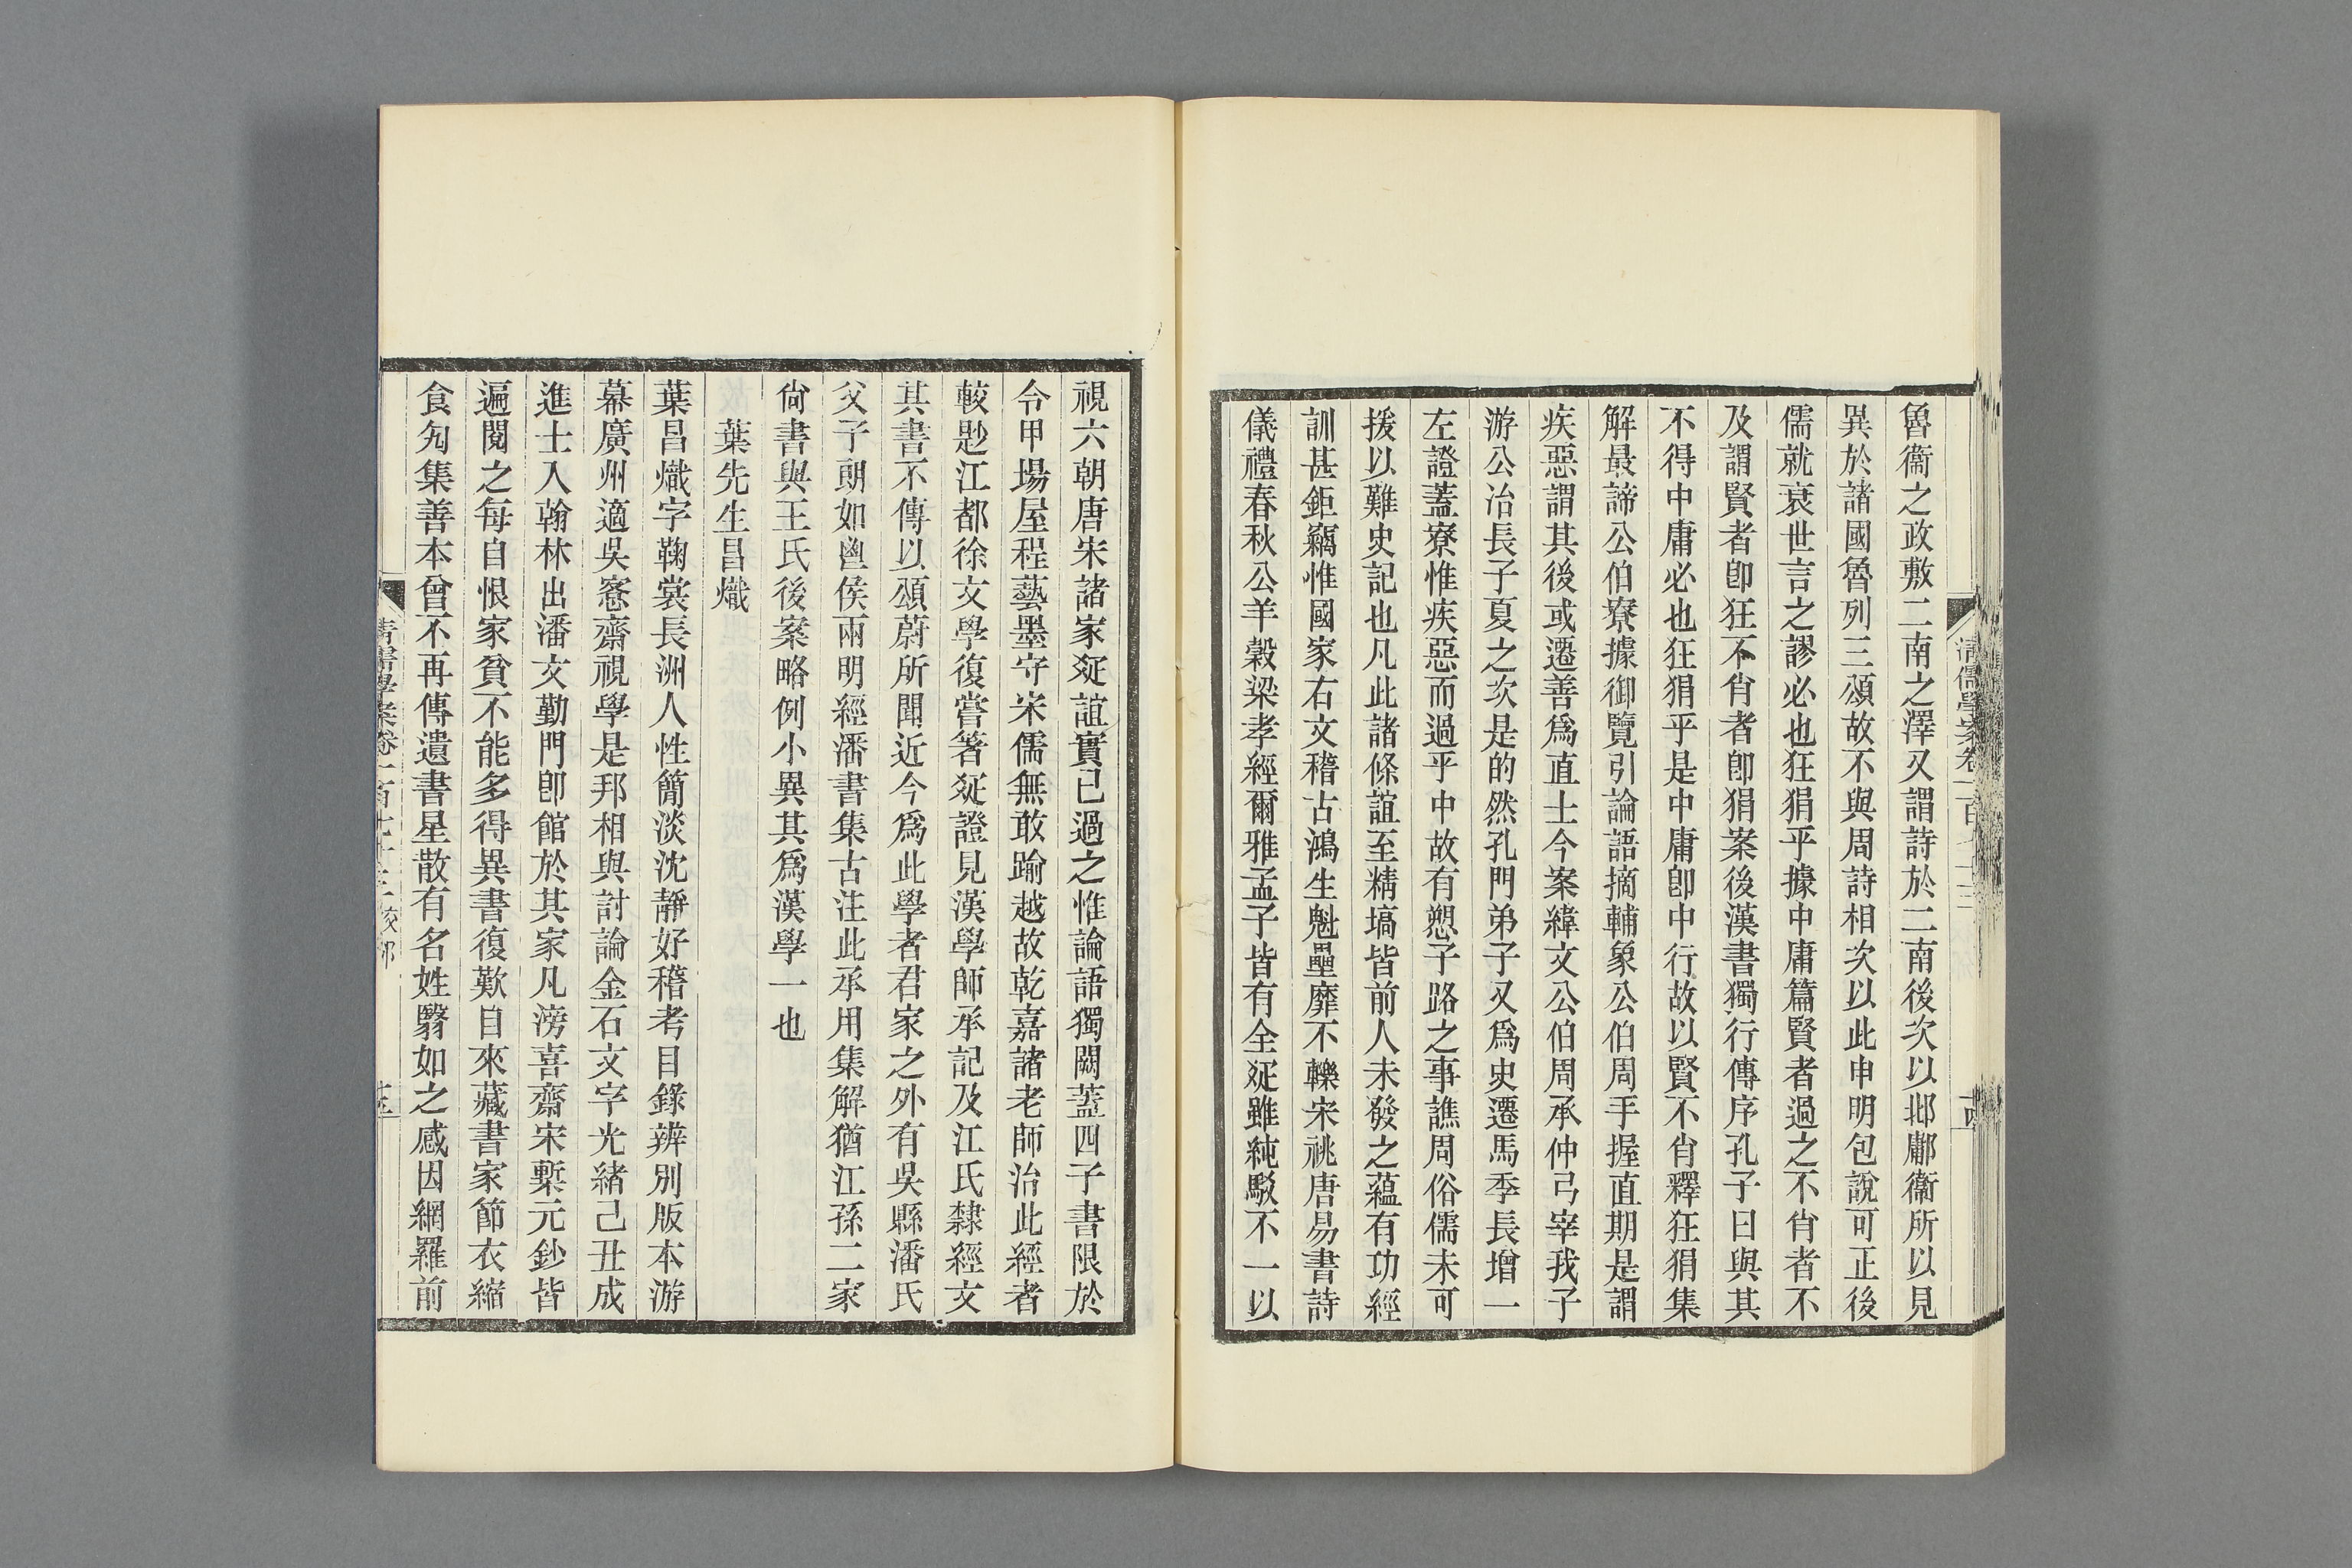 清儒學案卷一百七十三
十四
魯衞之政敷二南之澤又謂詩於二南後次以邶鄘衞所以見
異於諸國魯列三頌故不與周詩相次以此申明包說可正後
儒就衰世言之謬必也狂狷乎據中庸篇賢者過之不肖者不
及謂賢者卽狂不肖者卽狷案後漢書獨行傳序孔子曰與其
不得中庸必也狂狷乎是中庸卽中行故以賢不肖釋狂狷集
解最諦公伯寮據御覽引論語摘輔象公伯周手握直期是謂
疾惡謂其後或遷善爲直士今案緯文公伯周承仲弓宰我子
游公冶長子夏之次是的然孔門弟子又爲史遷馬季長增一
左證蓋寮惟疾惡而過乎中故有愬子路之事譙周俗儒未可
援以難史記也凡此諸條誼至精塙皆前人未發之蘊有功經
訓甚鉅竊惟國家右文稽古鴻生魁壘靡不轢宋祧唐易書詩
儀禮春秋公羊穀梁孝經爾雅孟子皆有全疏雖純駁不一以
視六朝唐宋諸家疏誼實已過之惟論語獨闕蓋四子書限於
令甲場屋程藝墨守宋儒無敢踰越故乾嘉諸老師治此經者
較尟江都徐文學復嘗箸疏證見漢學師承記及江氏隸經文
其書不傳以頌蔚所聞近今爲此學者君家之外有吳縣潘氏
父子朙如鬯侯兩明經潘書集古注此承用集解猶江孫二家
尙書與王氏後案略例小異其爲漢學一也
葉先生昌熾
葉昌熾字鞠裳長洲人性簡淡沈靜好稽考目錄辨別版本游
幕廣州適吳愙齋視學是邦相與討論金石文字光緒己丑成
進士入翰林出潘文勤門卽館於其家凡滂喜齋宋槧元鈔皆
遍閱之每自恨家貧不能多得異書復歎自來藏書家節衣縮
食匃集善本曾不再傳遺書星散有名姓翳如之感因網羅前
清儒學案卷一百七十三
十三